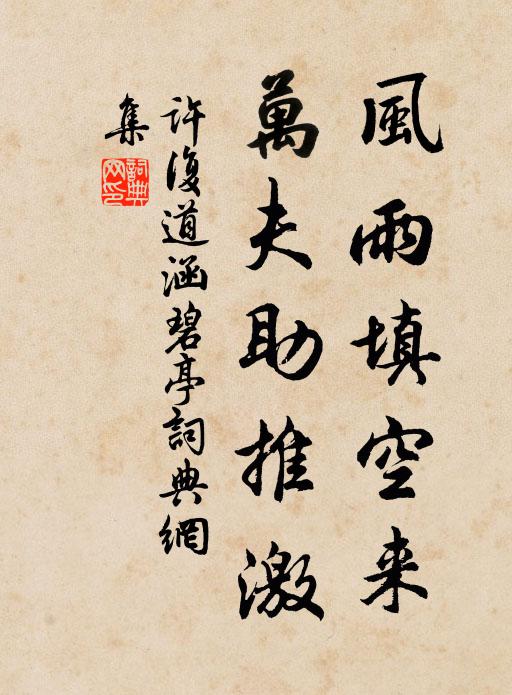 風雨填空来
萬夫助推激
許復道涵碧亭詞典網
集
詞典網印